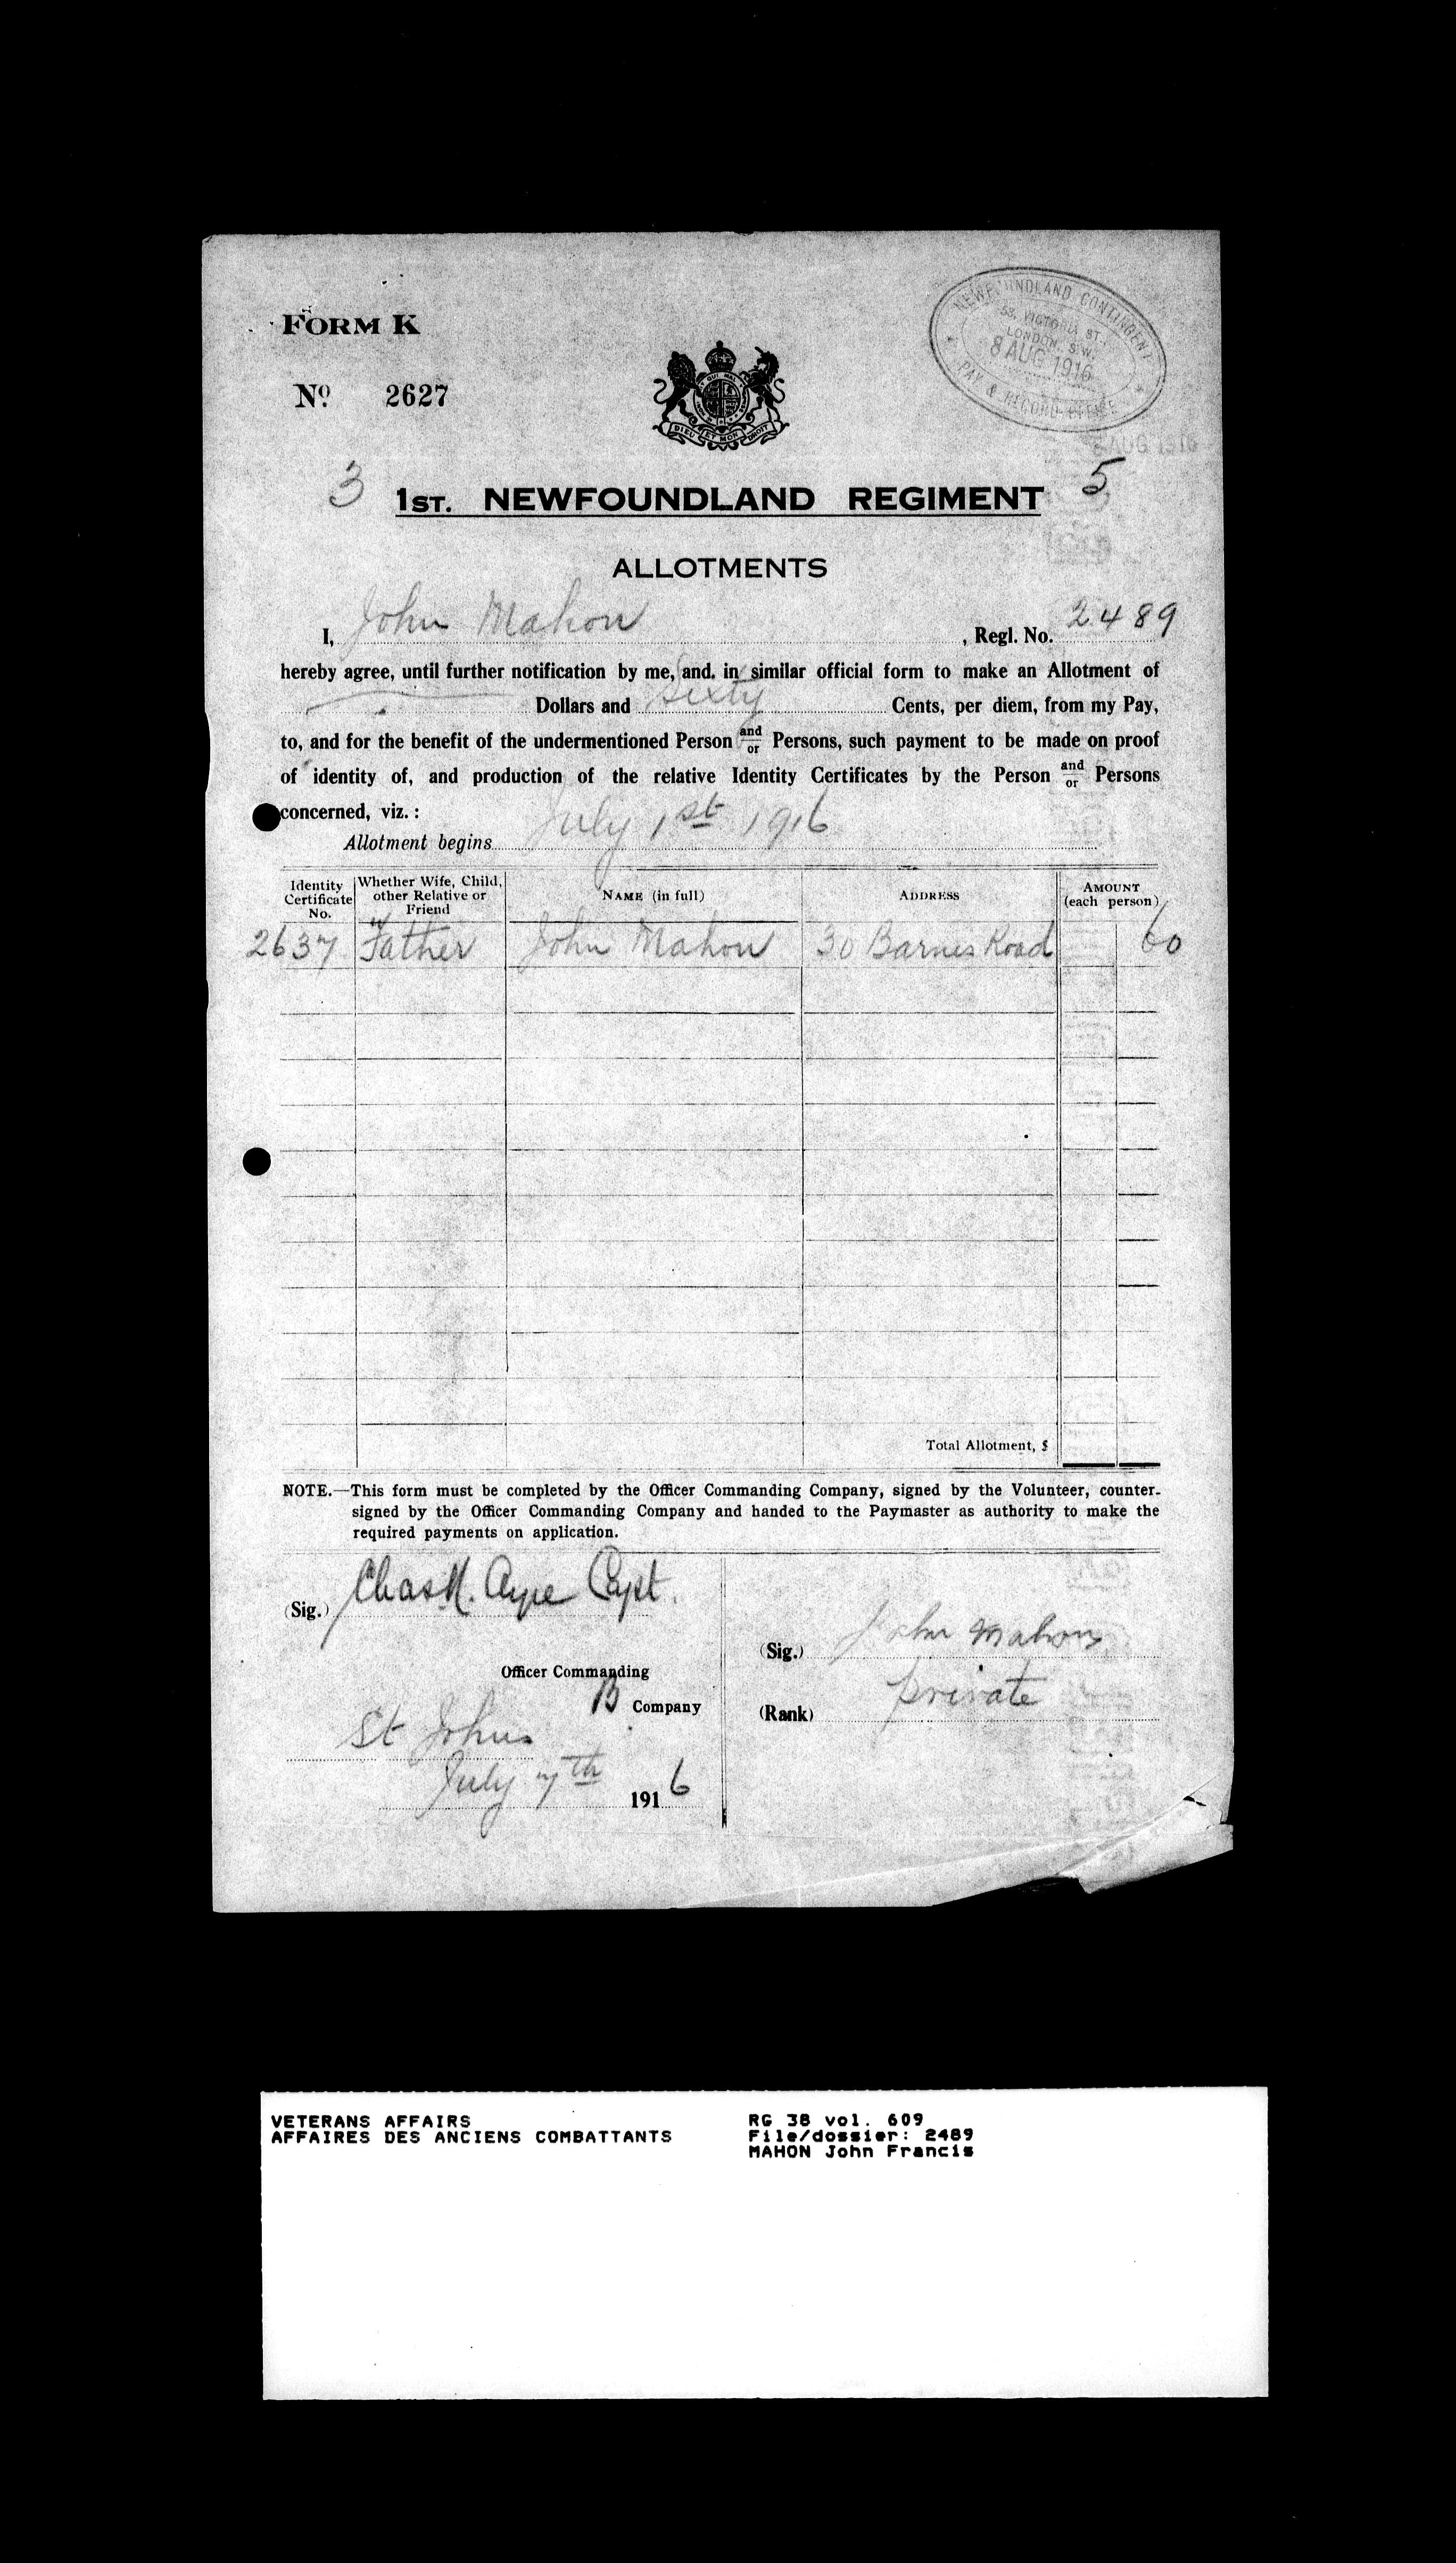 FORM K
No. 2627
NEWFOUNDLAND CONTINGENT
58, VICTORIA ST.,
LONDON, S.W.
8 AUG 1916
PAY & RECORD OFFICE
DIEU ET MON DROIT
3 1ST. NEWFOUNDLAND REGIMENT 5
ALLOTMENTS
I, John Mahon, Regl. No. 2489
hereby agree, until further notification by me, and, in similar official form to make an Allotment of
Dollars and Sixty Cents, per diem, from my Pay,
to, and for the benefit of the undermentioned Person and/or Persons, such payment to be made on proof
of identity of, and production of the relative Identity Certificates by the Person and/or Persons
concerned, viz. :
Allotment begins July 1st 1916
Identity Certificate No. Whether Wife, Child, other Relative or Friend NAME (in full) ADDRESS AMOUNT (each person)
2637 Father John Mahon 30 Barnes Road 60
Total Allotment, $
NOTE.—This form must be completed by the Officer Commanding Company, signed by the Volunteer, counter-
signed by the Officer Commanding Company and handed to the Paymaster as authority to make the
required payments on application.
(Sig.) Chas H. Ayre Capt.
Officer Commanding
B Company
St Johns
July 7th 1916
(Sig.) John Mahon
(Rank) private
VETERANS AFFAIRS
AFFAIRES DES ANCIENS COMBATTANTS
RG 38 vol. 609
File/dossier: 2489
MAHON John Francis